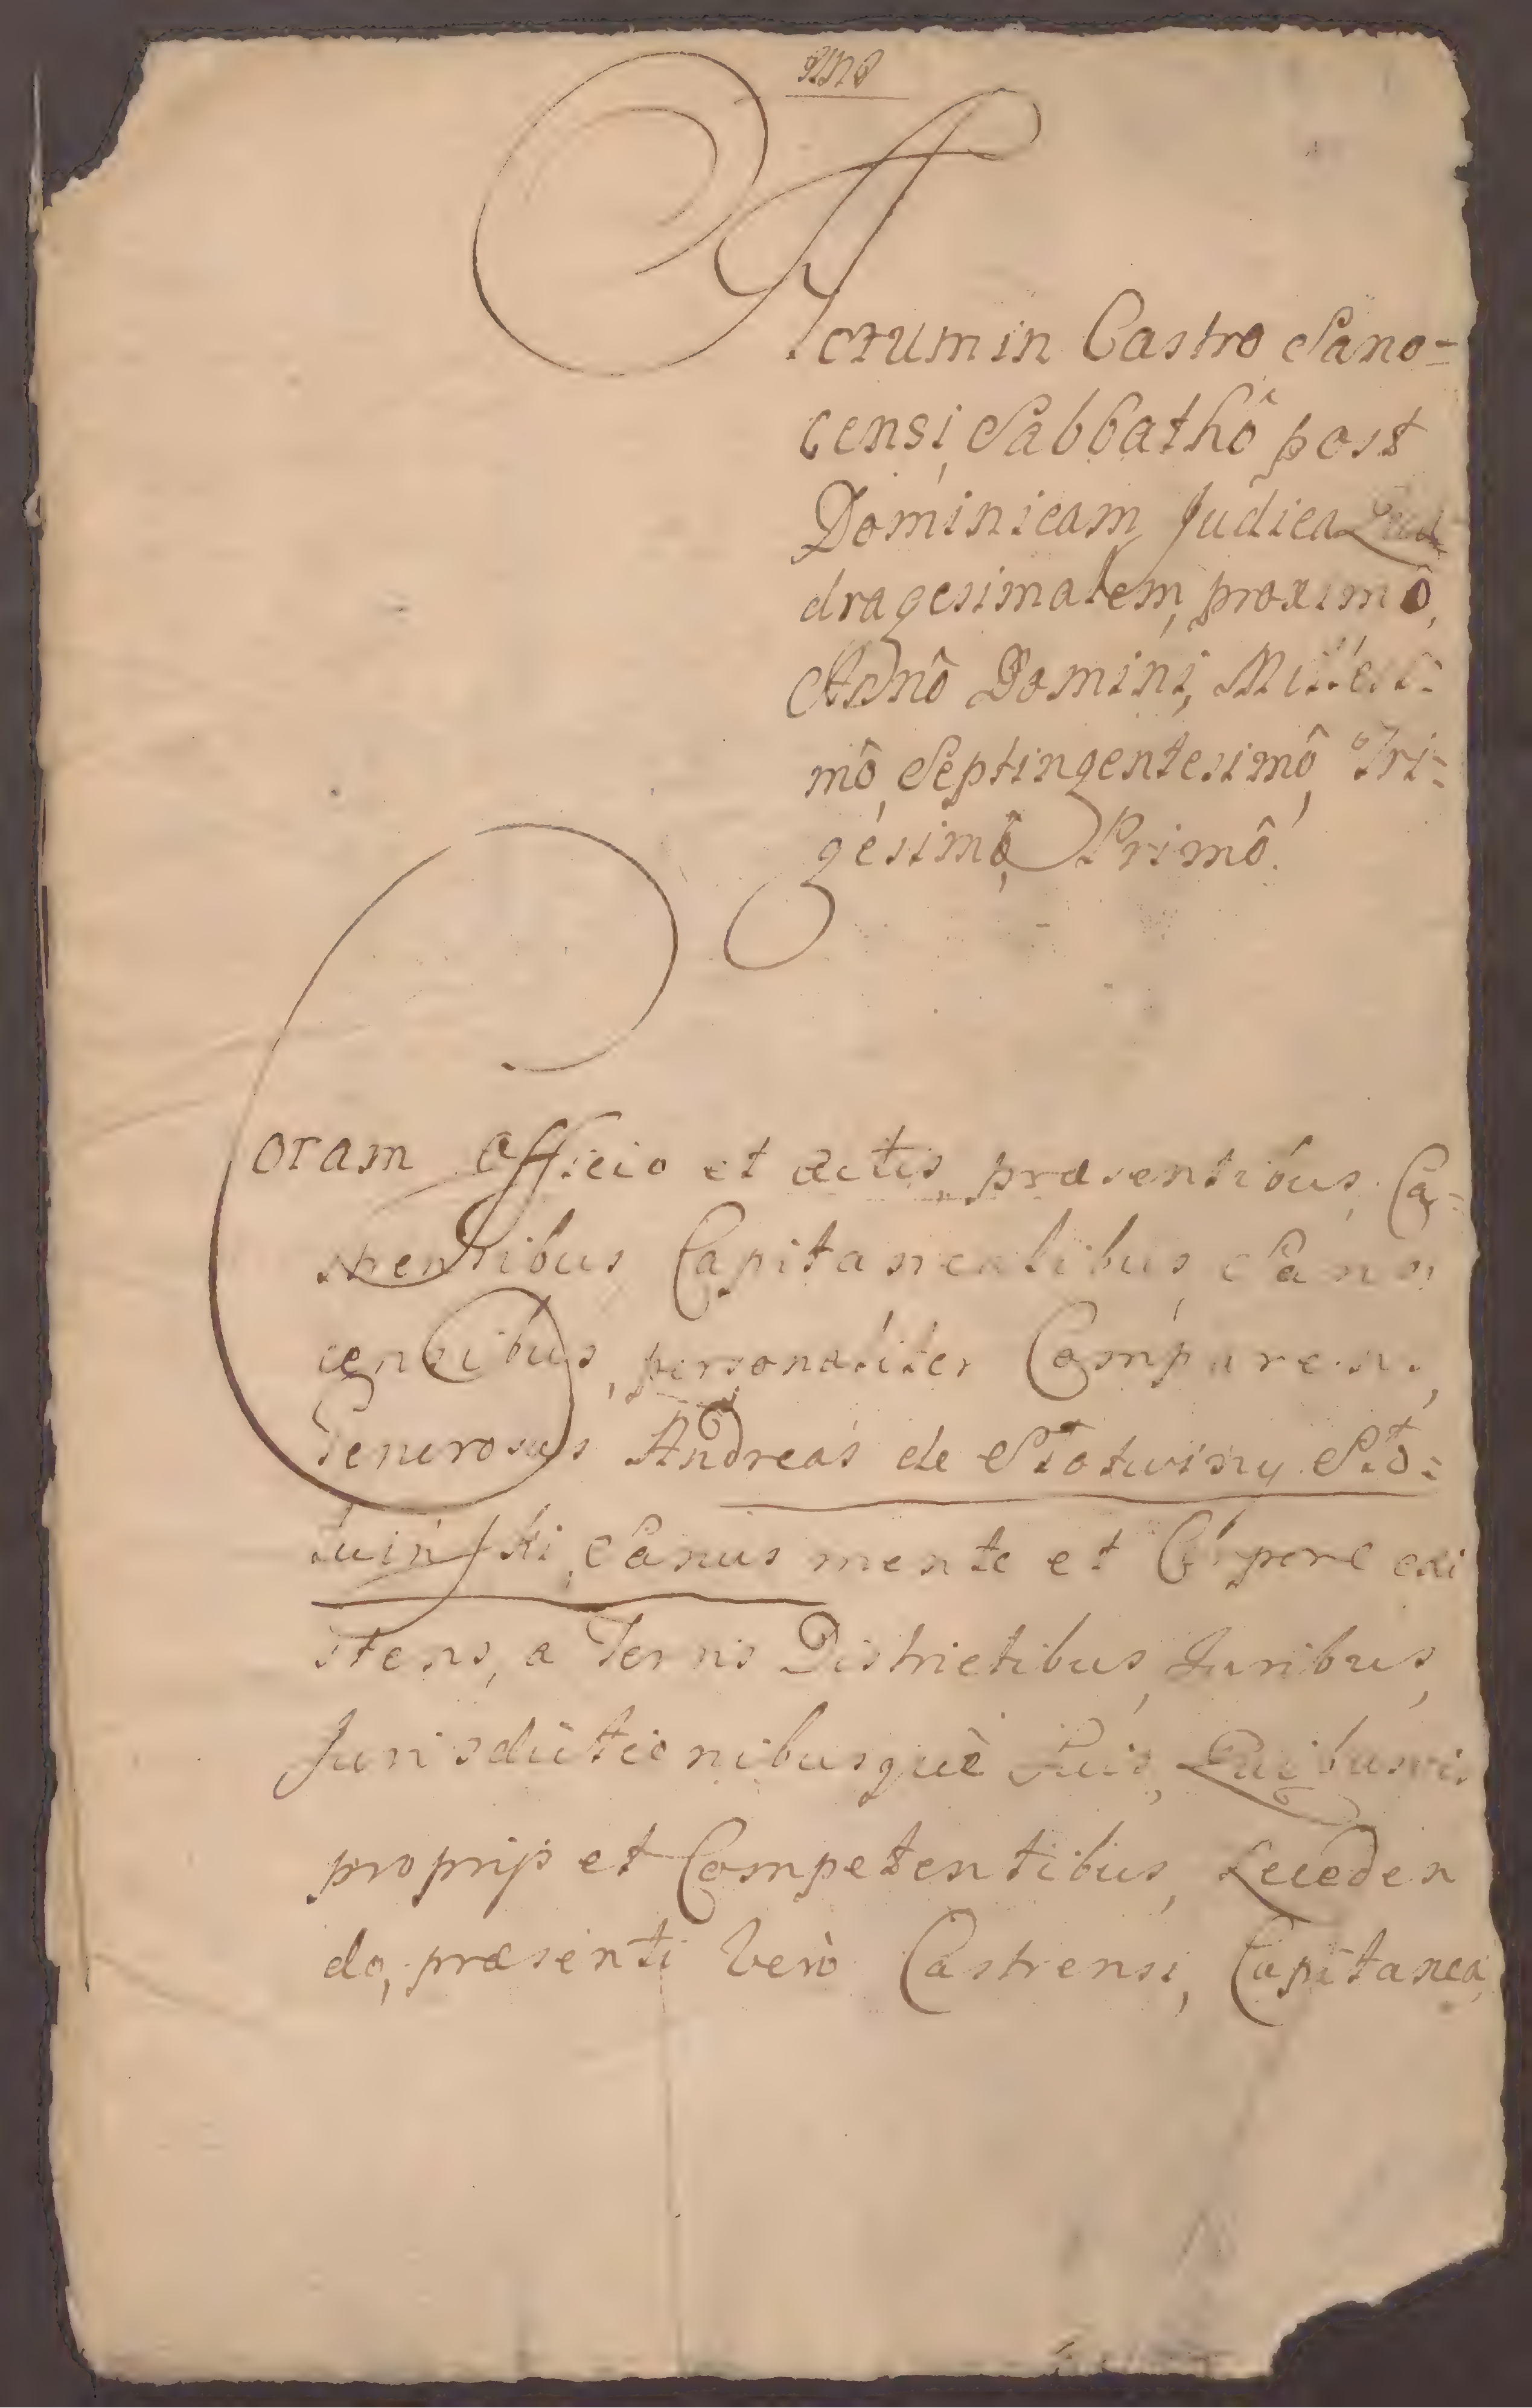 Actum in Castro Sano-
censi, Sabbathô post
Dominicam Judica Qua
dragesimalem, proximô,
Annô Domini, Millesi:
mô, Septingentesimô, Tri:
gesimô, Primô.
Coram Officio et actis, præsentibus, Ca-
strensibus Capitanealibus, Sano
censibus, personaliter Comparens,
Generosus Andreas de Stotwiny Sto:
twinski, Sanus mente et Corpore exi
stens, a Terris Districtibus, Juribus,
Jurisdictionibusquè suis, Quibusvis
proprijs et Competentibus, Receden
do, præsenti verò Castrensi, Capitanea,